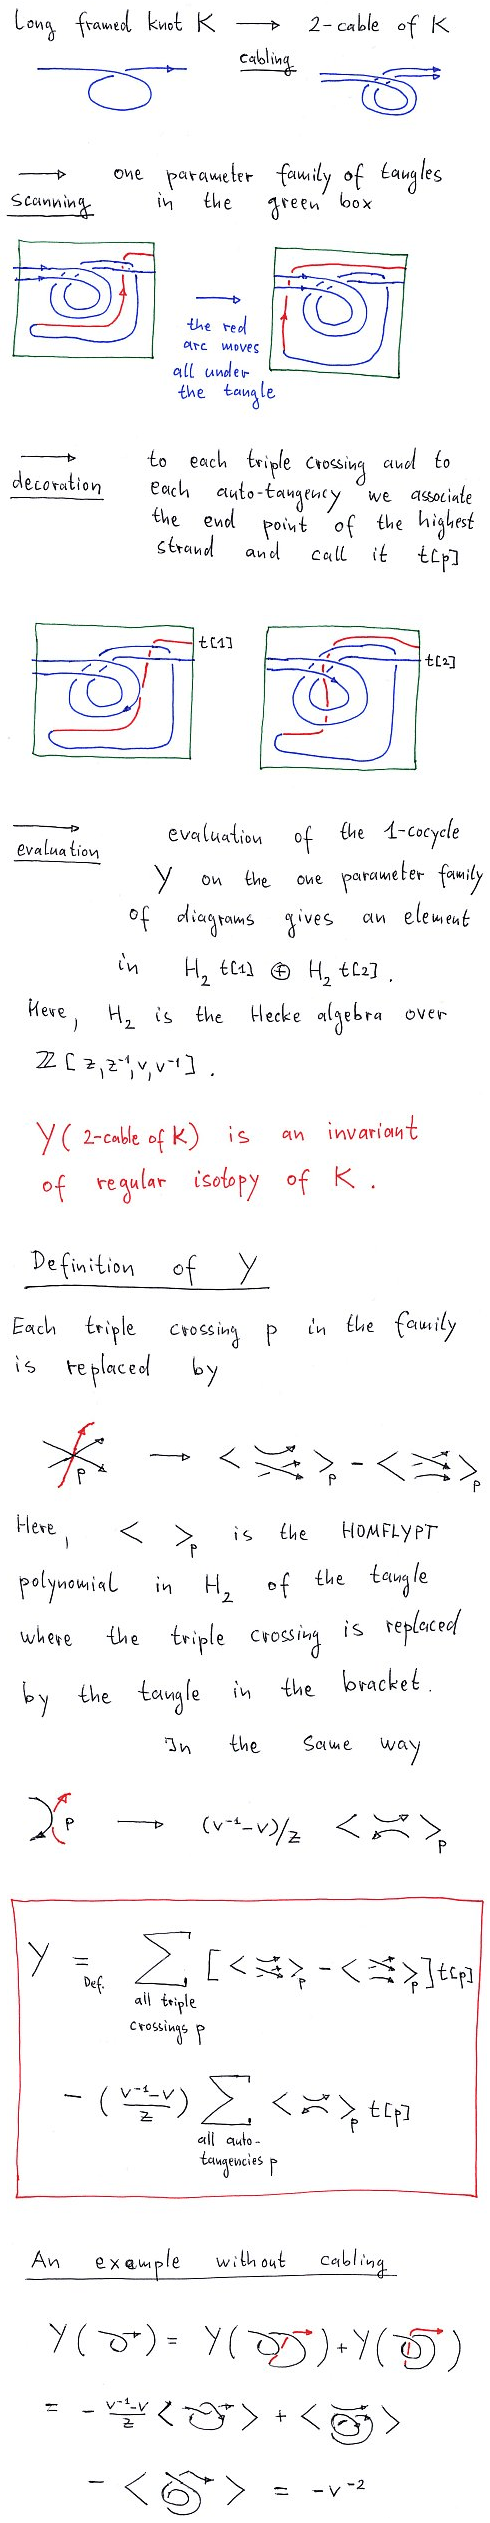 Long framed knot K → 2-cable of K
cabling
→ one parameter family of tangles
scanning in the green box
→
the red
arc moves
all under
the tangle
→ to each triple crossing and to
decoration each auto-tangency we associate
the end point of the highest
strand and call it t[p]
t[1]
t[2]
→ evaluation of the 1-cocycle
evaluation
Y on the one parameter family
of diagrams gives an element
in H₂ t[1] ⊕ H₂ t[2].
Here, H₂ is the Hecke algebra over
ℤ[z, z⁻¹, v, v⁻¹].
Y(2-cable of K) is an invariant
of regular isotopy of K.
Definition of Y
Each triple crossing p in the family
is replaced by
p → < >p - < >p
Here, < >p is the HOMFLYPT
polynomial in H₂ of the tangle
where the triple crossing is replaced
by the tangle in the bracket.
In the same way
p → (v⁻¹-v)/z < >p
Y = Def. Σ [< >p - < >p] t[p]
all triple
crossings p
- (v⁻¹-v / z) Σ < >p t[p]
all auto-
tangencies p
An example without cabling
Y( ) = Y( ) + Y( )
= - v⁻¹-v / z < > + < >
- < > = -v⁻²